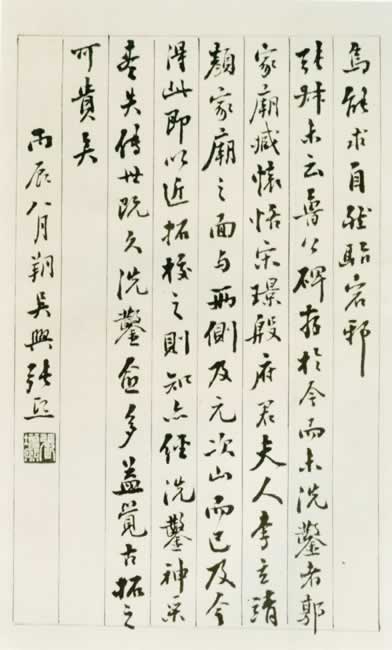 焉能求自然駘宕邪
張叔未云魯公碑存於今而未洗鑿者郭
家廟臧懷恪宋璟殷府君夫人李玄靖
顏家廟之面與兩側及元次山而已及今
得此即以近拓校之則知亦經洗鑿神采
盡失傳世既久洗鑿愈多益覺古拓之
可貴矣
丙辰八月朔吳興張熙